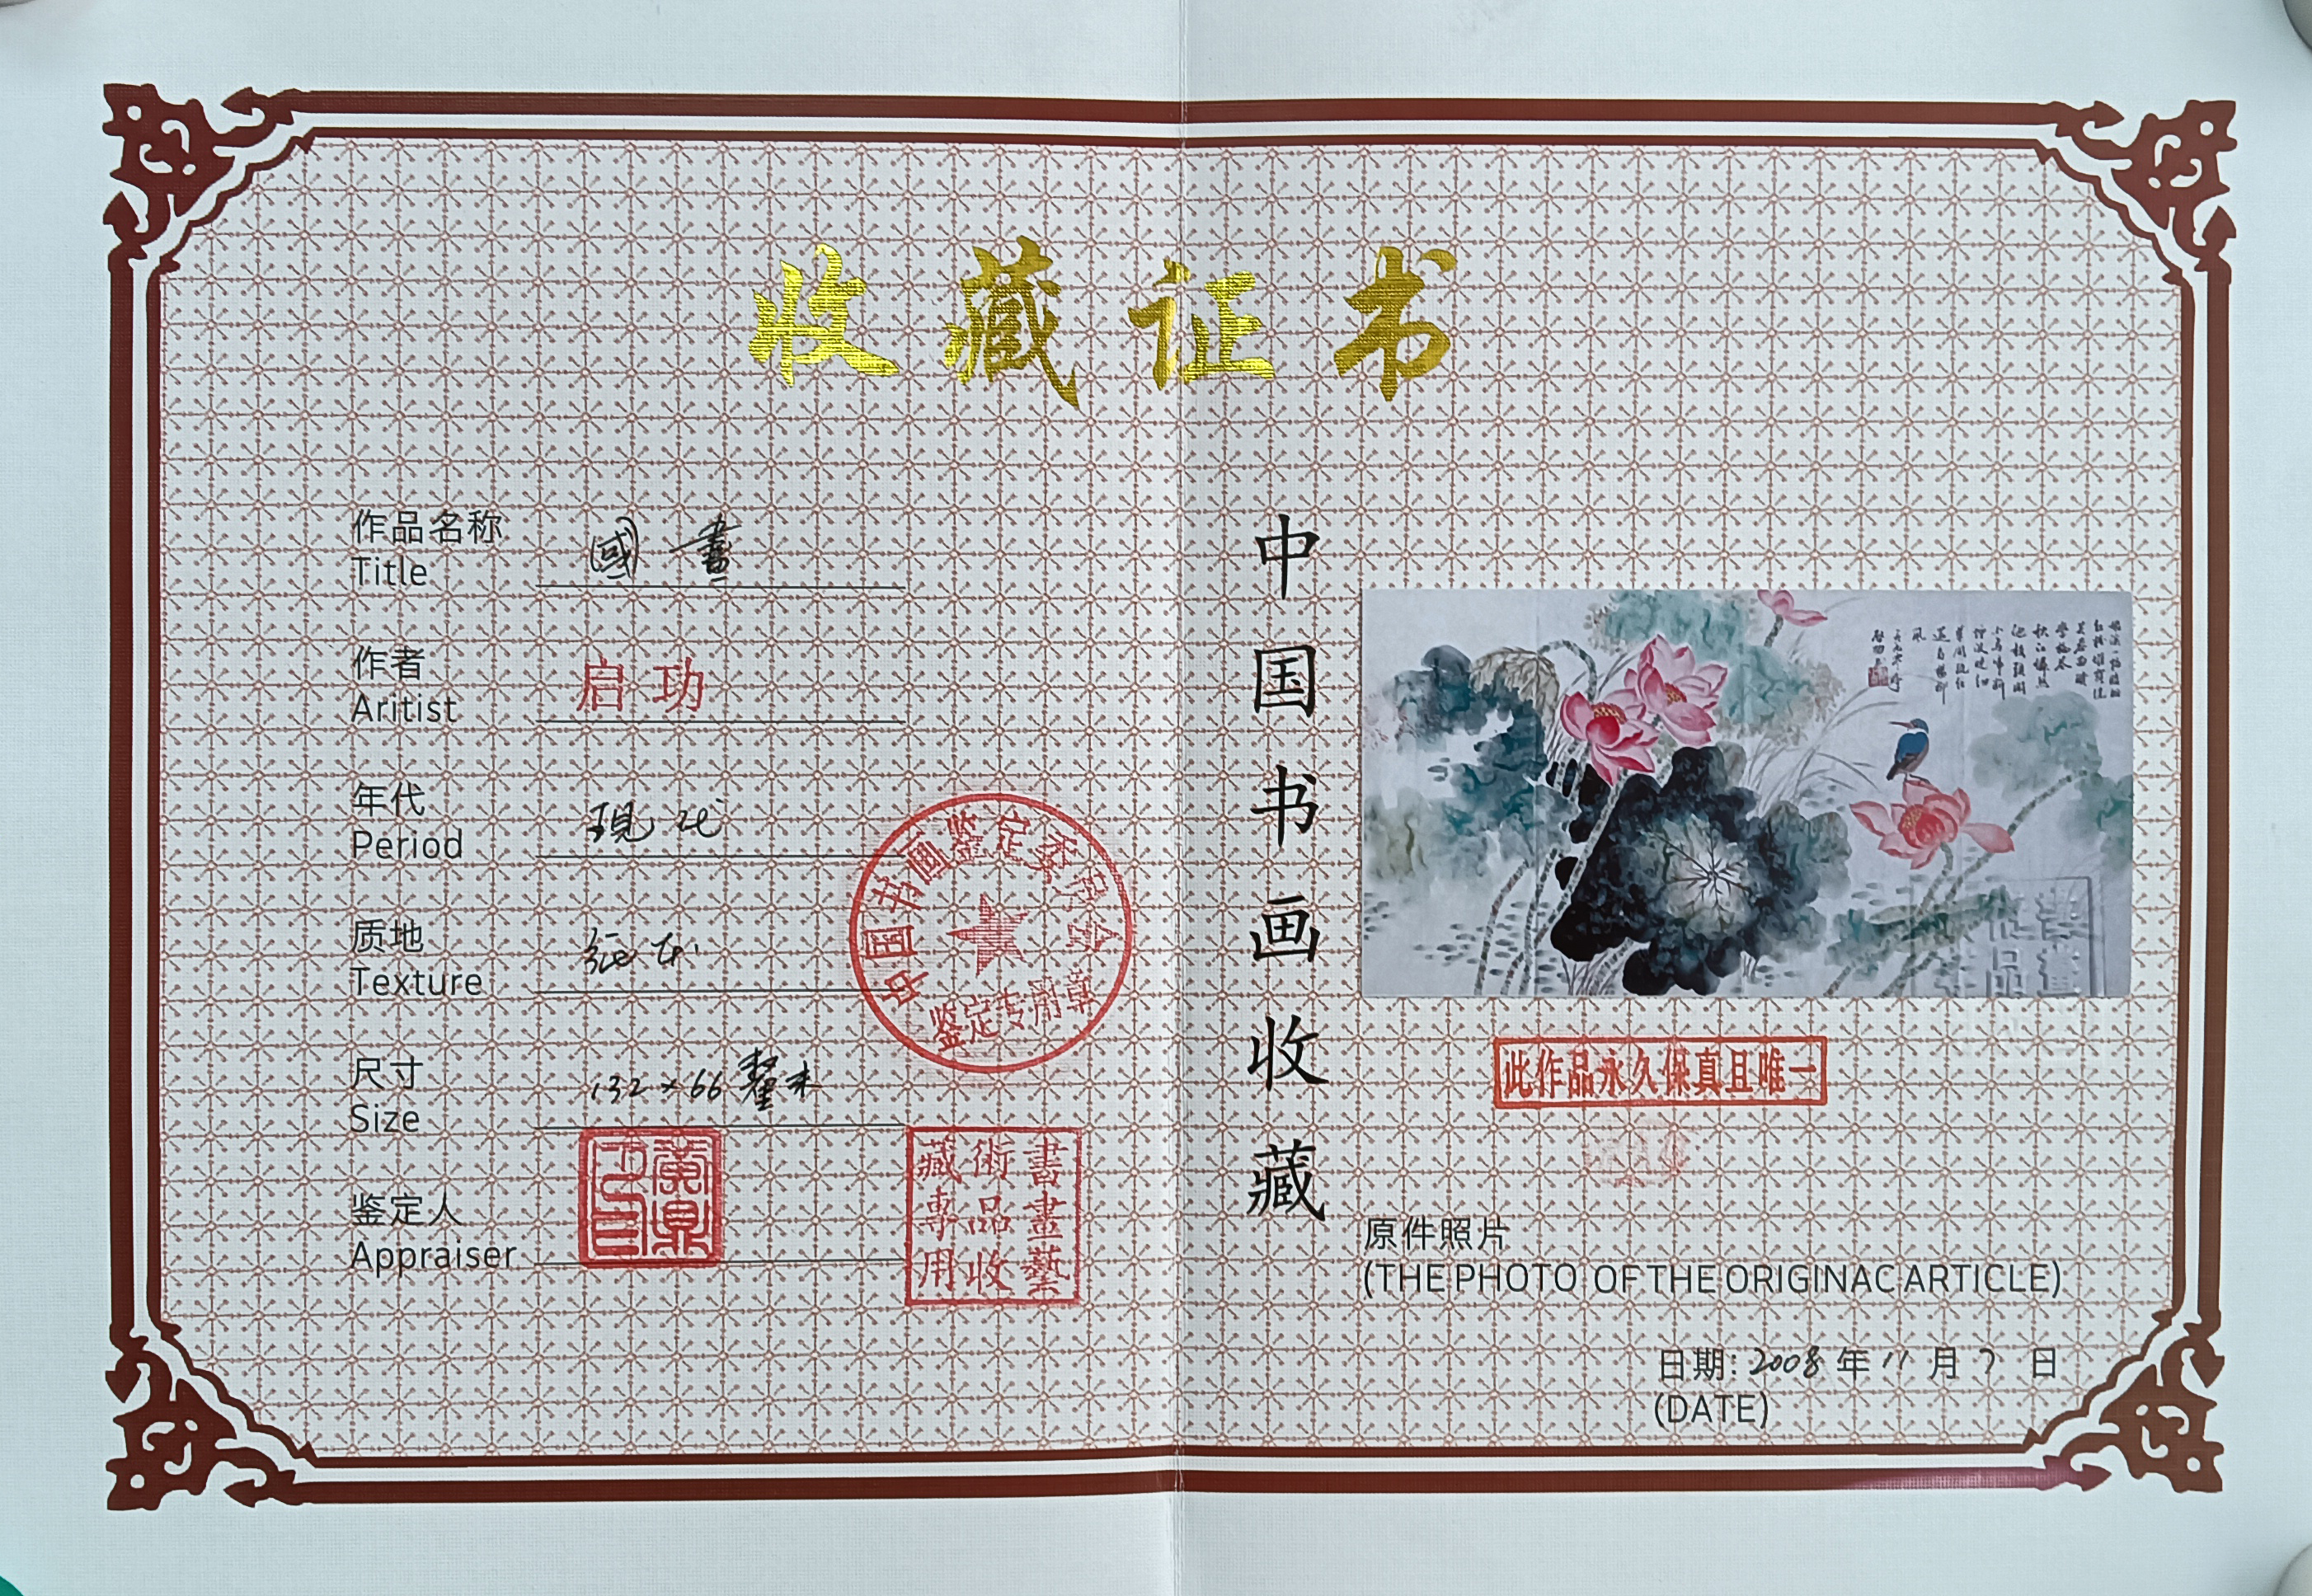 收藏证书
作品名称
Title
國畫
作者
Aritist
启功
年代
Period
現代
质地
Texture
纸本
尺寸
Size
132×66釐米
鉴定人
Appraiser
中国书画鉴定委员会
鉴定专用章
書畫藝
術品收
藏專用
中国书画收藏
此作品永久保真且唯一
原件照片
(THE PHOTO OF THE ORIGINAC ARTICLE)
日期: 2008年11月7日
(DATE)